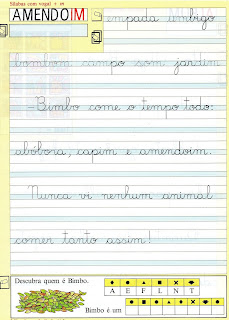 Sílabas com vogal + m
AMENDOIM
empada umbigo
bombom campo som jardim
-Bimbo come o tempo todo:
abóbora, capim e amendoim.
Nunca vi nenhum animal
comer tanto assim!
Descubra quem é Bimbo.
A E F L N T
Bimbo é um